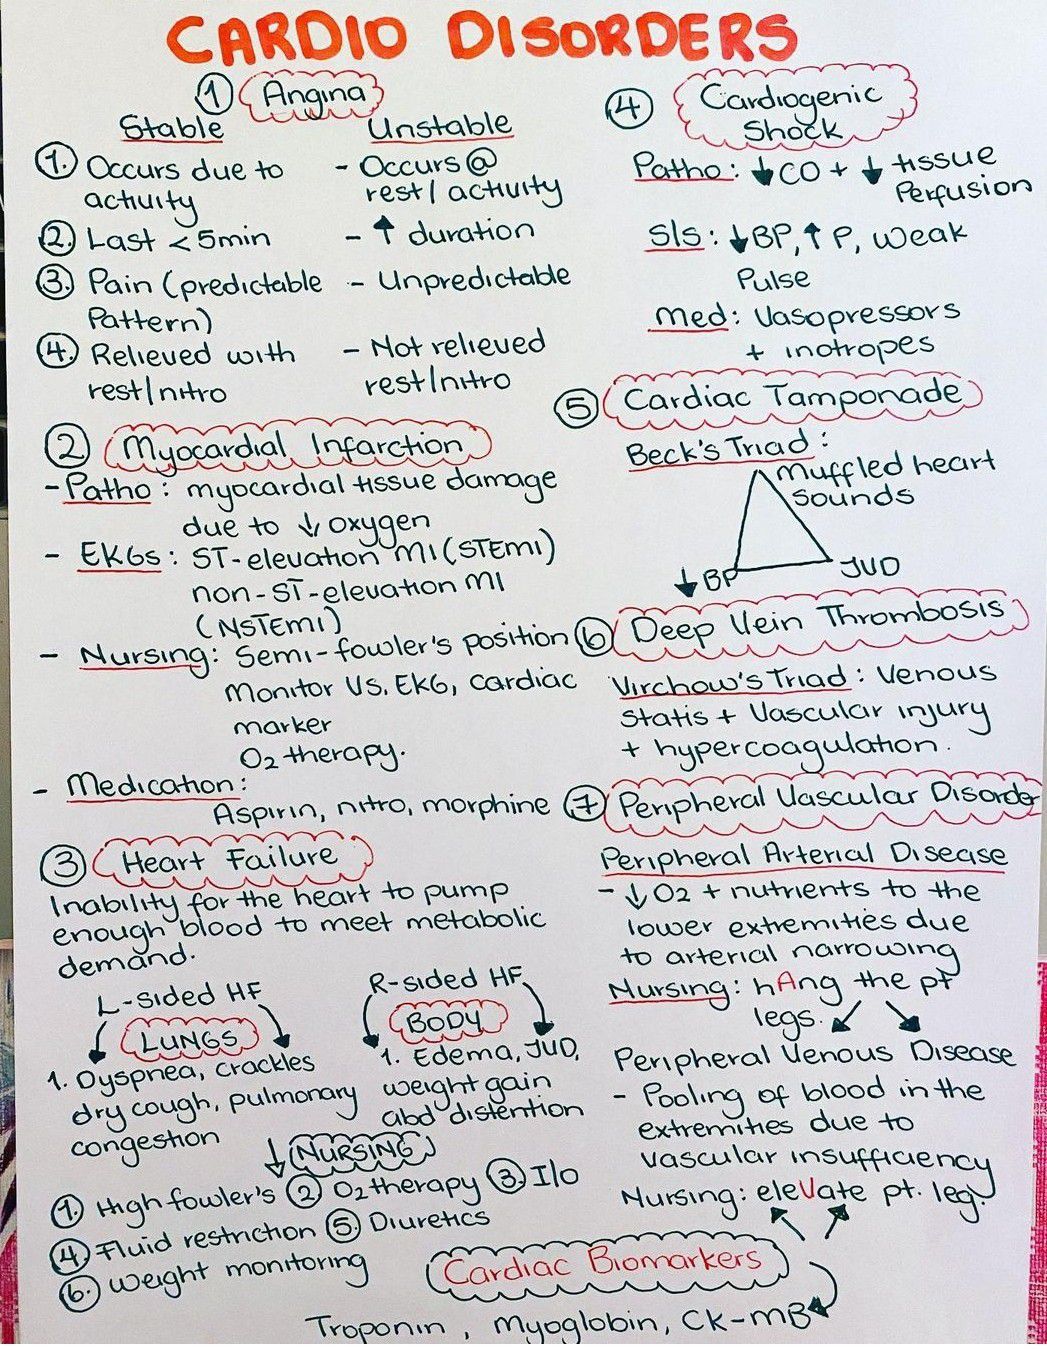 CARDIO DISORDERS
① Angina
Stable Unstable
①. Occurs due to - Occurs @
activity rest/activity
②. Last < 5min - ↑ duration
③. Pain (predictable - Unpredictable
Pattern)
④. Relieved with - Not relieved
rest/nitro rest/nitro
② Myocardial Infarction
- Patho: myocardial tissue damage
due to ↓ oxygen
- EKGs: ST-elevation MI (STEMI)
non-ST-elevation MI
(NSTEMI)
- Nursing: Semi-fowler's position
Monitor VS, EKG, cardiac
marker
O2 therapy.
- Medication:
Aspirin, nitro, morphine
③ Heart Failure
Inability for the heart to pump
enough blood to meet metabolic
demand.
L-sided HF R-sided HF
LUNGS BODY
1. Dyspnea, crackles
dry cough, pulmonary
congestion
1. Edema, JVD,
weight gain
abd distention
↓ NURSING
①. High fowler's ② O2 therapy ③. I/o
④ Fluid restriction ⑤. Diuretics
⑥. Weight monitoring
④ Cardiogenic
Shock
Patho: ↓ CO + ↓ tissue
Perfusion
S/s: ↓BP, ↑ P, weak
Pulse
Med: Vasopressors
+ inotropes
⑤ Cardiac Tamponade
Beck's Triad:
Muffled heart
sounds
↓ BP JVD
⑥ Deep Vein Thrombosis
Virchow's Triad: Venous
Statis + Vascular injury
+ hypercoagulation.
⑦. Peripheral Vascular Disorder
Peripheral Arterial Disease
- ↓ O2 + nutrients to the
lower extremities due
to arterial narrowing
Nursing: hAng the pt
legs.
Peripheral Venous Disease
- Pooling of blood in the
extremities due to
vascular insufficiency
Nursing: eleVate pt. leg.
Cardiac Biomarkers
Troponin, Myoglobin, CK-MB